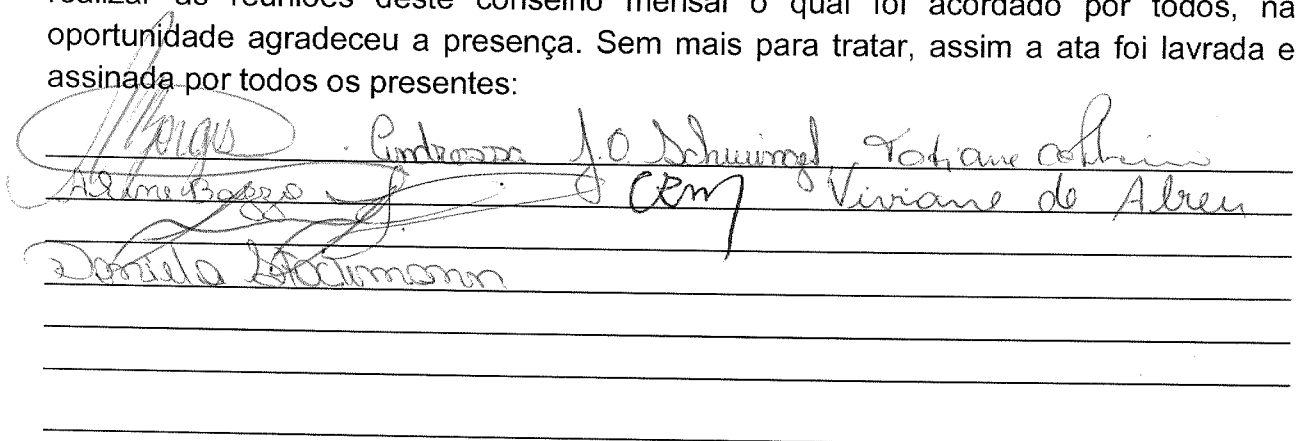 realizar as reuniões deste conselho mensal o qual foi acordado por todos, na
oportunidade agradeceu a presença. Sem mais para tratar, assim a ata foi lavrada e
assinada por todos os presentes:
Borges Andressa J.O Tatiane
Aline Bozzo CRM Viviane de Abreu
Daniela